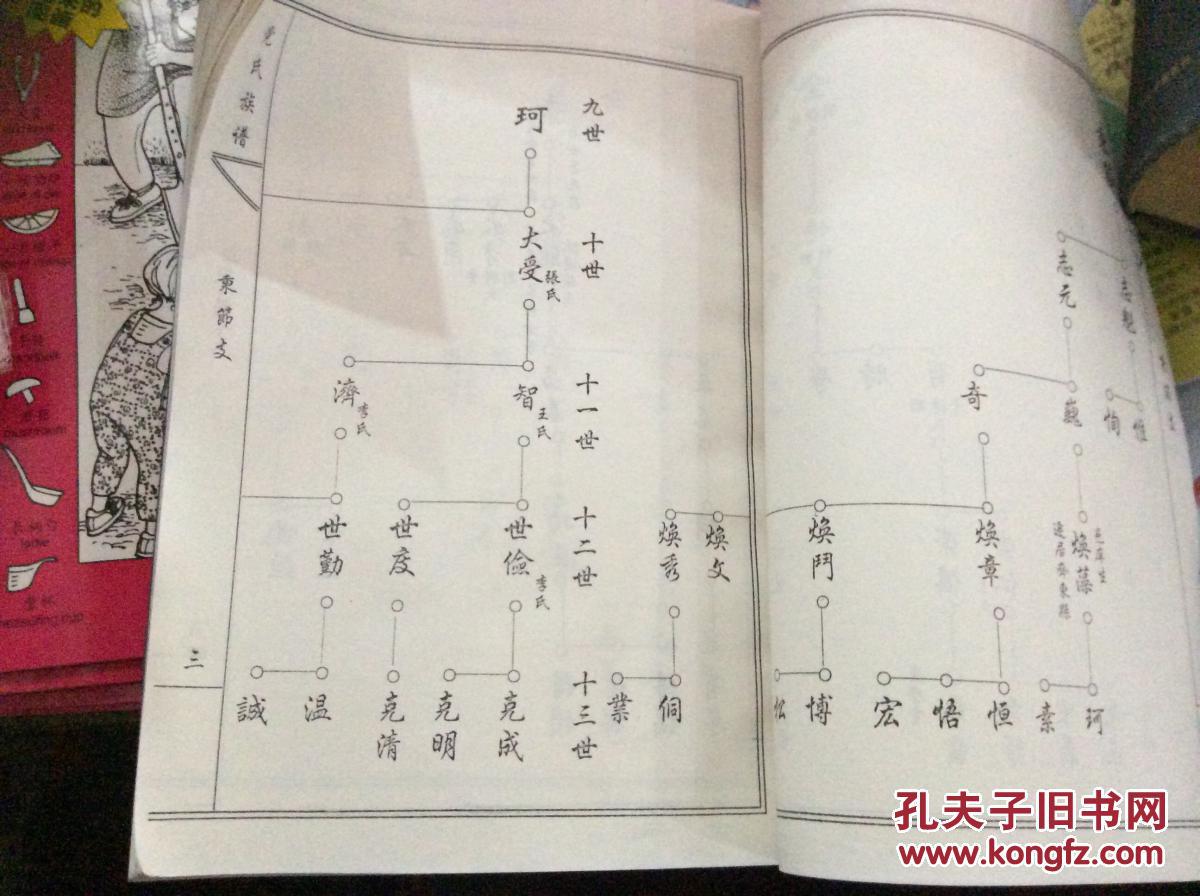 志元
奇
巍
恂
煥藻
煥章
煥鬥
煥文
煥秀
珂
素
恒
悟
宏
博
松
侗
業
九世
十世
十一世
十二世
十三世
珂
大受
張氏
智
王氏
濟
李氏
世儉
李氏
世度
世勤
克成
克明
克清
温
誠
氏族谱
東節支
三
mushroom
measuring cup
孔夫子旧书网
www.kongfz.com